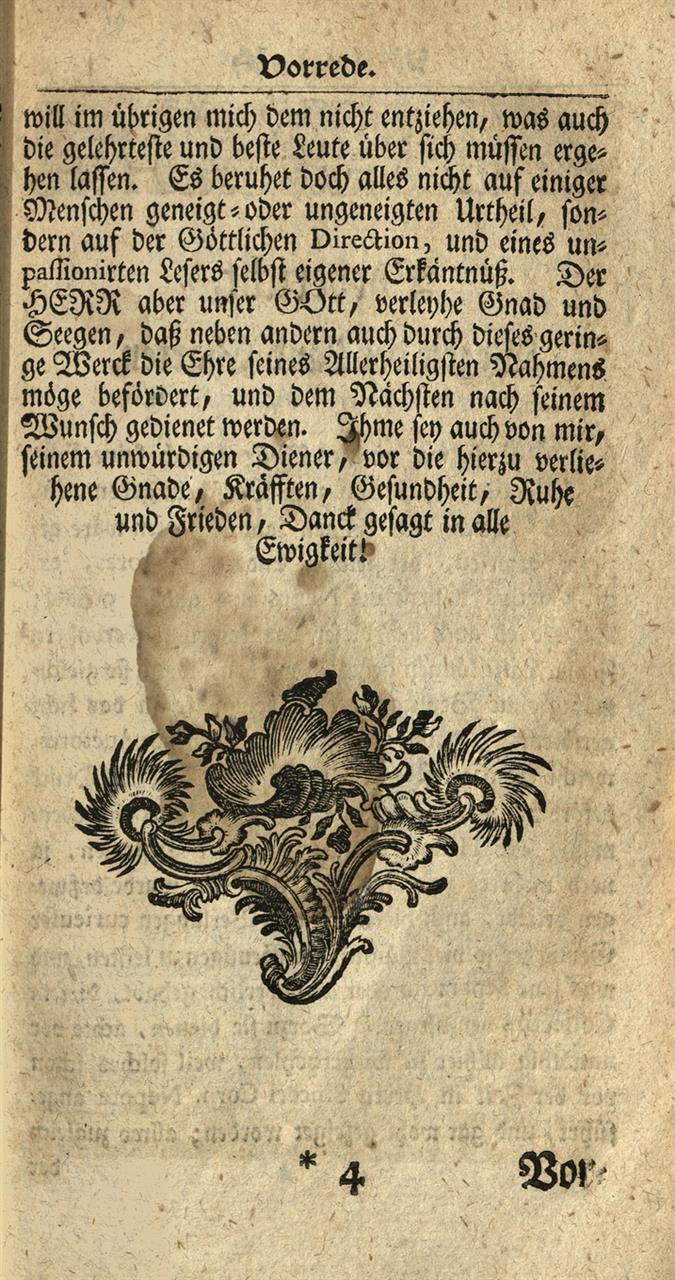 Vorrede.
will im übrigen mich dem nicht entziehen, was auch
die gelehrteste und beste Leute über sich müssen erge-
hen lassen. Es beruhet doch alles nicht auf einiger
Menschen geneigt-oder ungeneigten Urtheil, son-
dern auf der Göttlichen Direction, und eines un-
passionirten Lesers selbst eigener Erkäntnüß. Der
HERR aber unser GOtt, verleyhe Gnad und
Seegen, daß neben andern auch durch dieses gerin-
ge Werck die Ehre seines Allerheiligsten Nahmens
möge befördert, und dem Nächsten nach seinem
Wunsch gedienet werden. Ihme sey auch von mir,
seinem unwürdigen Diener, vor die hierzu verlie-
hene Gnade, Kräfften, Gesundheit, Ruhe
und Frieden, Danck gesagt in alle
Ewigkeit!
* 4 Vor-